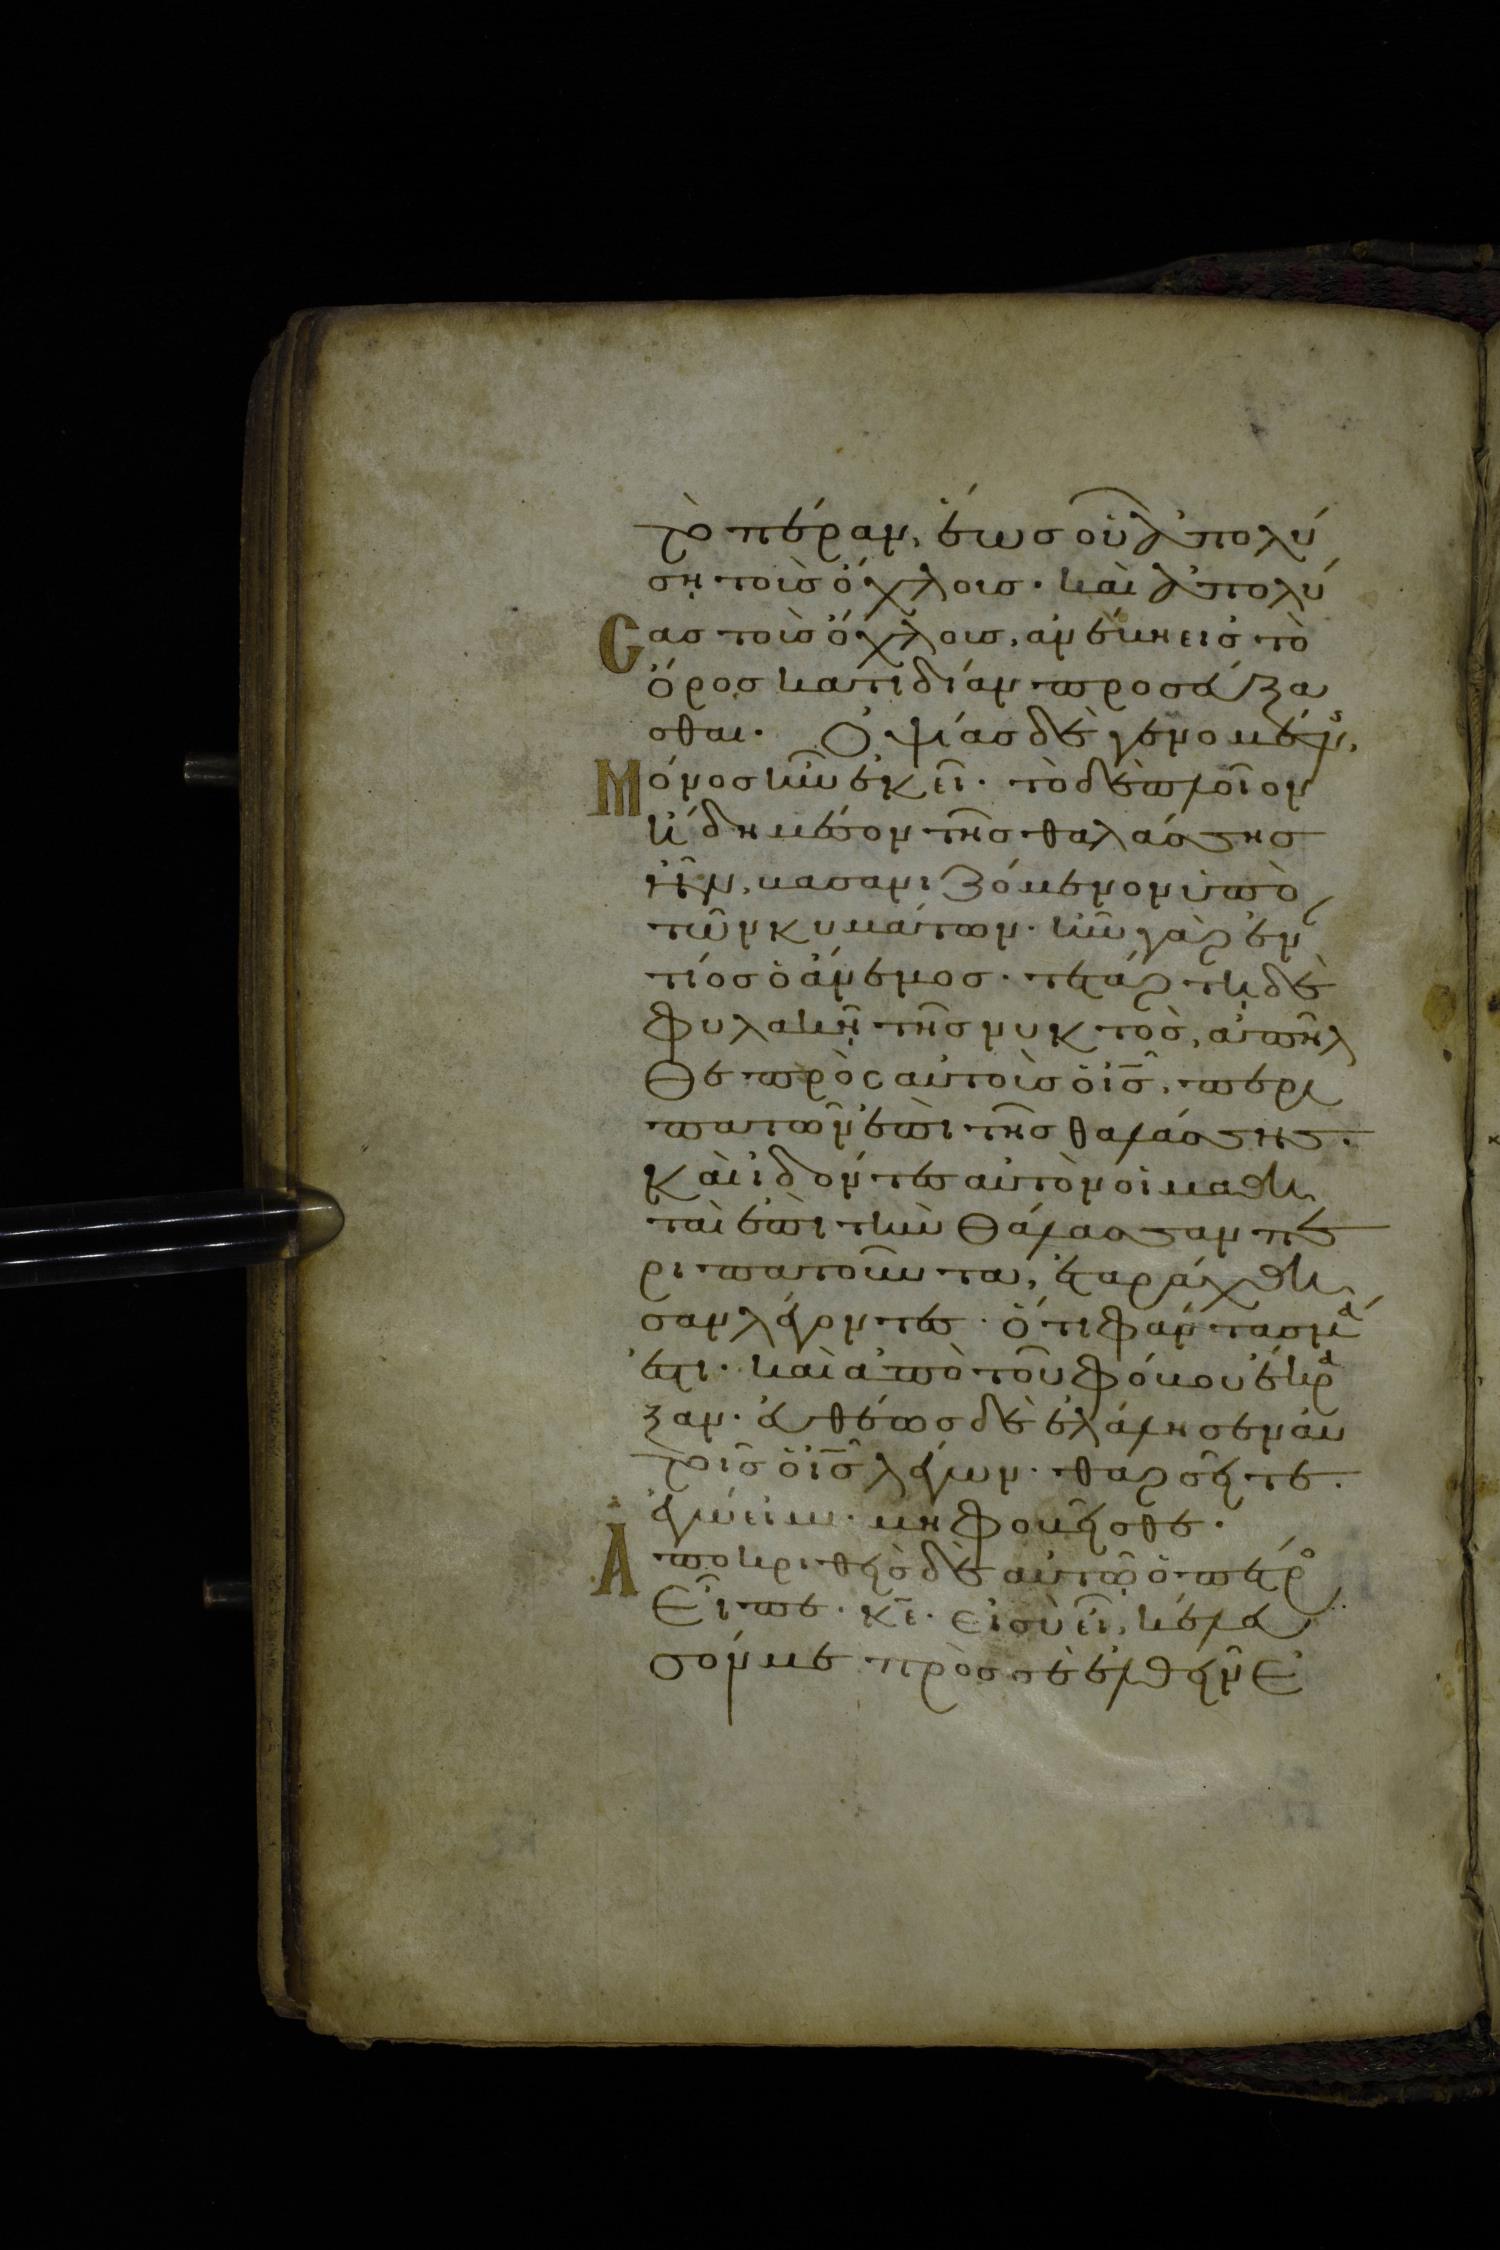 τὸ πέραν, ἕως οὗ ἀπολύ
σῃ τοὺσ ὄχλους· καὶ ἀπολύ
Σασ τοὺσ ὄχλουσ, ἀνέβη εἰσ τὸ
ὄροσ κατιδίαν προσεύξα
σθαι. Ὀψίασ δὲ γενομένησ,
Μόνοσ ἦν ἐκεῖ· τὸ δὲ πλοῖον
ἤδη μέσον τῆσ θαλάσσησ
ἦν, βασανιζόμενον ὑπὸ
τῶν κυμάτων· ἦν γὰρ ἐναν
τίοσ ὁ ἄνεμοσ· τετάρτῃ δὲ
φυλακῇ τῆσ νυκτὸσ, ἀπῆλ
θε πρὸς αὐτοὺσ ὁ ισ, περι
πατῶν ἐπὶ τῆσ θαλάσσησ.
Καὶ ἰδόντεσ αὐτὸν οἱ μαθη
ταὶ ἐπὶ τὴν θάλασσαν πε
ριπατοῦντα, ἐταράχθη
σαν λέγοντεσ· ὅτι φάντασμα
ἐστι· καὶ ἀπὸ τοῦ φόβου ἔκρα
ξαν· εὐθέωσ δὲ ἐλάλησεν αὐ
τοῖσ ὁ ισ λέγων· θαρσεῖτε.
ἐγώ εἰμι· μὴ φοβεῖσθε.
Ἀποκριθεὶσ δὲ αὐτῷ ὁ πέτροσ
Εἶπε· κε· εἰ σὺ εἶ, κέλευ
σόν με πρὸσ σὲ ἐλθεῖν ἐ